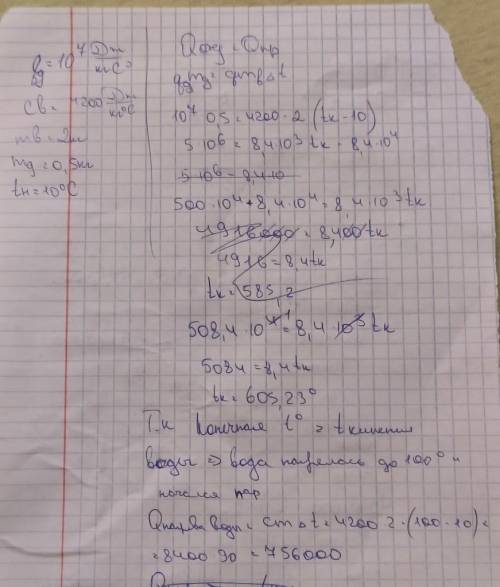 q = 10⁷ Дж/кг С°
cв = 4200 Дж/кг°С
mв = 2кг
mд = 0,5кг
tн = 10°С
Qотд = Qпр
qдmд = cвmвΔt
10⁷ 0,5 = 4200·2 (tк - 10)
5·10⁶ = 8,4·10³ tк - 8,4·10⁴
5·10⁶ - 8,4·10
500·10⁴ + 8,4·10⁴ = 8,4·10³ tк
4916000 = 8,400 tк
4916 = 8,4tк
tк = 585,2
508,4·10⁴ = 8,4·10³ tк
5084 = 8,4tк
tк = 605,23°
Т.к конечная t° > t кипения
воды => вода нагрелась до 100° и
начался пар
Qнагрева воды = cmΔt = 4200·2·(100-10) =
= 8400·90 = 756000